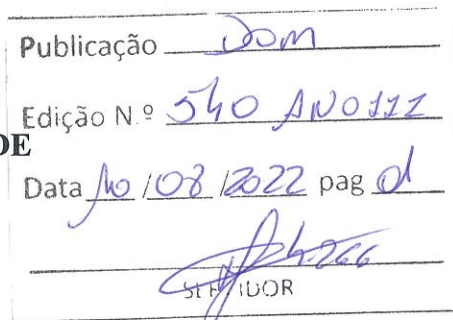 Publicação DOM
Edição N.º 540 ANO III
DE
Data 10/08/2022 pag
SERVIDOR